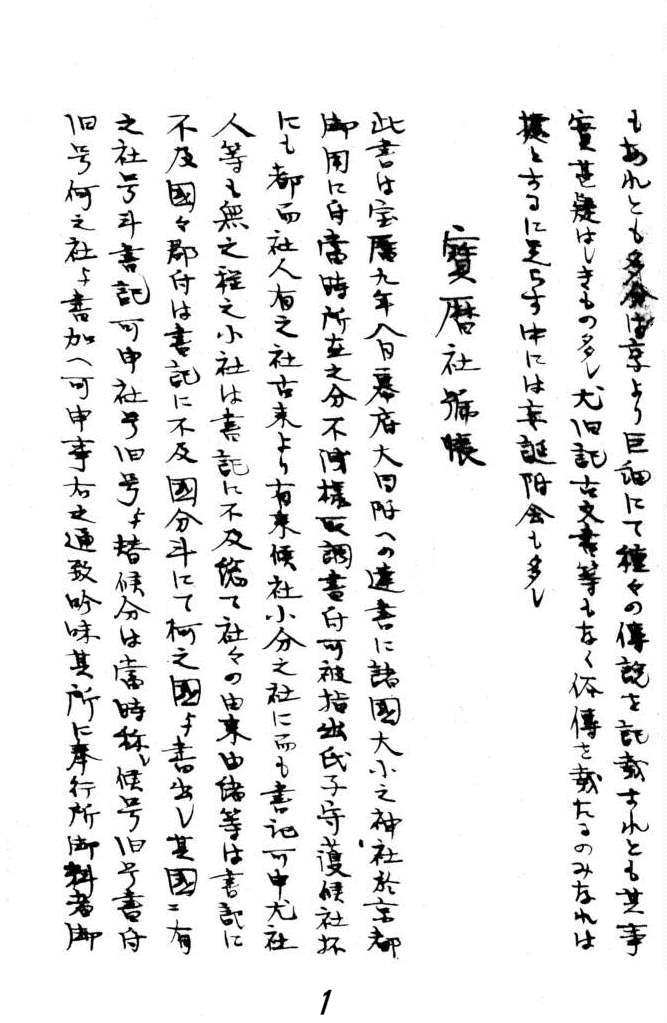 もあれとも多分は享より巨細にて種々の傳説を記載すれとも其事
實甚疑はしきもの多し尤旧記古文書等もなく俗傳を載たるのみなれは
據とするに足らす中には妄誕附会も多し
寶暦社號帳
此書は宝暦九年八月幕府大目附への達書に諸國大小之神社於京都
御用に付當時所在之分不洩様取調書付可被指出氏子守護候社抔
にも都而社人有之社古来より有来候社小分之社に而も書記可申尤社
人等も無之程之小社は書記に不及惣て社々の由来由緒等は書記に
不及國々郡付は書記に不及國分斗にて何之國よ書出し其國ニ有
之社号斗書記可申社号旧号よ替候分は當時称し候号旧号書付
旧号何之社よ書加へ可申事右之通致吟味其所に奉行所御料者御
1